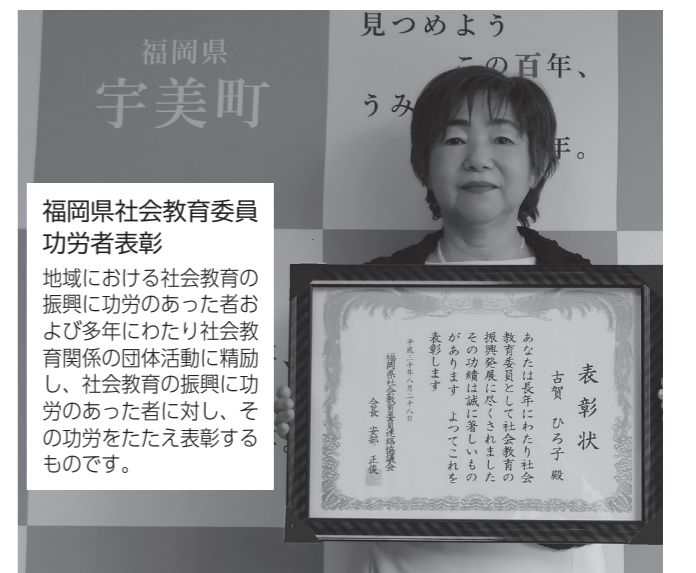 福岡県
宇美町
見つめよう
この百年、
うみ
年。
福岡県社会教育委員
功労者表彰
地域における社会教育の
振興に功労のあった者お
よび多年にわたり社会教
育関係の団体活動に精励
し、社会教育の振興に功
労のあった者に対し、そ
の功労をたたえ表彰する
ものです。
表彰状
古賀 ひろ子 殿
あなたは長年にわたり社会
教育委員として社会教育の
振興発展に尽くされました
その功績は誠に著しいもの
があります よつてこれを
表彰します
平成三十年八月二十八日
福岡県社会教育委員連絡協議会
会長 安部 正俊